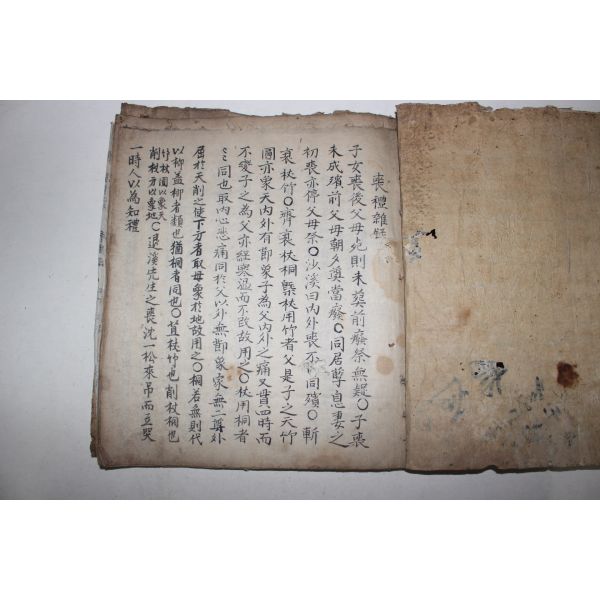 喪禮雜錄
子女喪後父母死則未葬前廢祭無疑〇子喪
未成殯前父母朝夕奠當廢〇同居孽息妻之
初喪亦停父母祭〇沙溪曰內外喪不同殯〇斬
衰杖竹〇齊衰杖桐槩杖用竹者父是子之天竹
圓亦象天內外有節象子為父內外之痛又貫四時而
不變子之為父亦經寒溫而不改故用之〇杖用桐者
言同也取內心悲痛同於父以外無節象家無二尊外
屈於天削之使下方者取母象於地故用之〇桐若無則代
以柳盖柳者類也猶桐者同也〇苴杖竹也削杖桐也
竹杖圓以象天
削杖方以象地〇退溪先生之喪沈一松來吊而立哭
一時人以為知禮